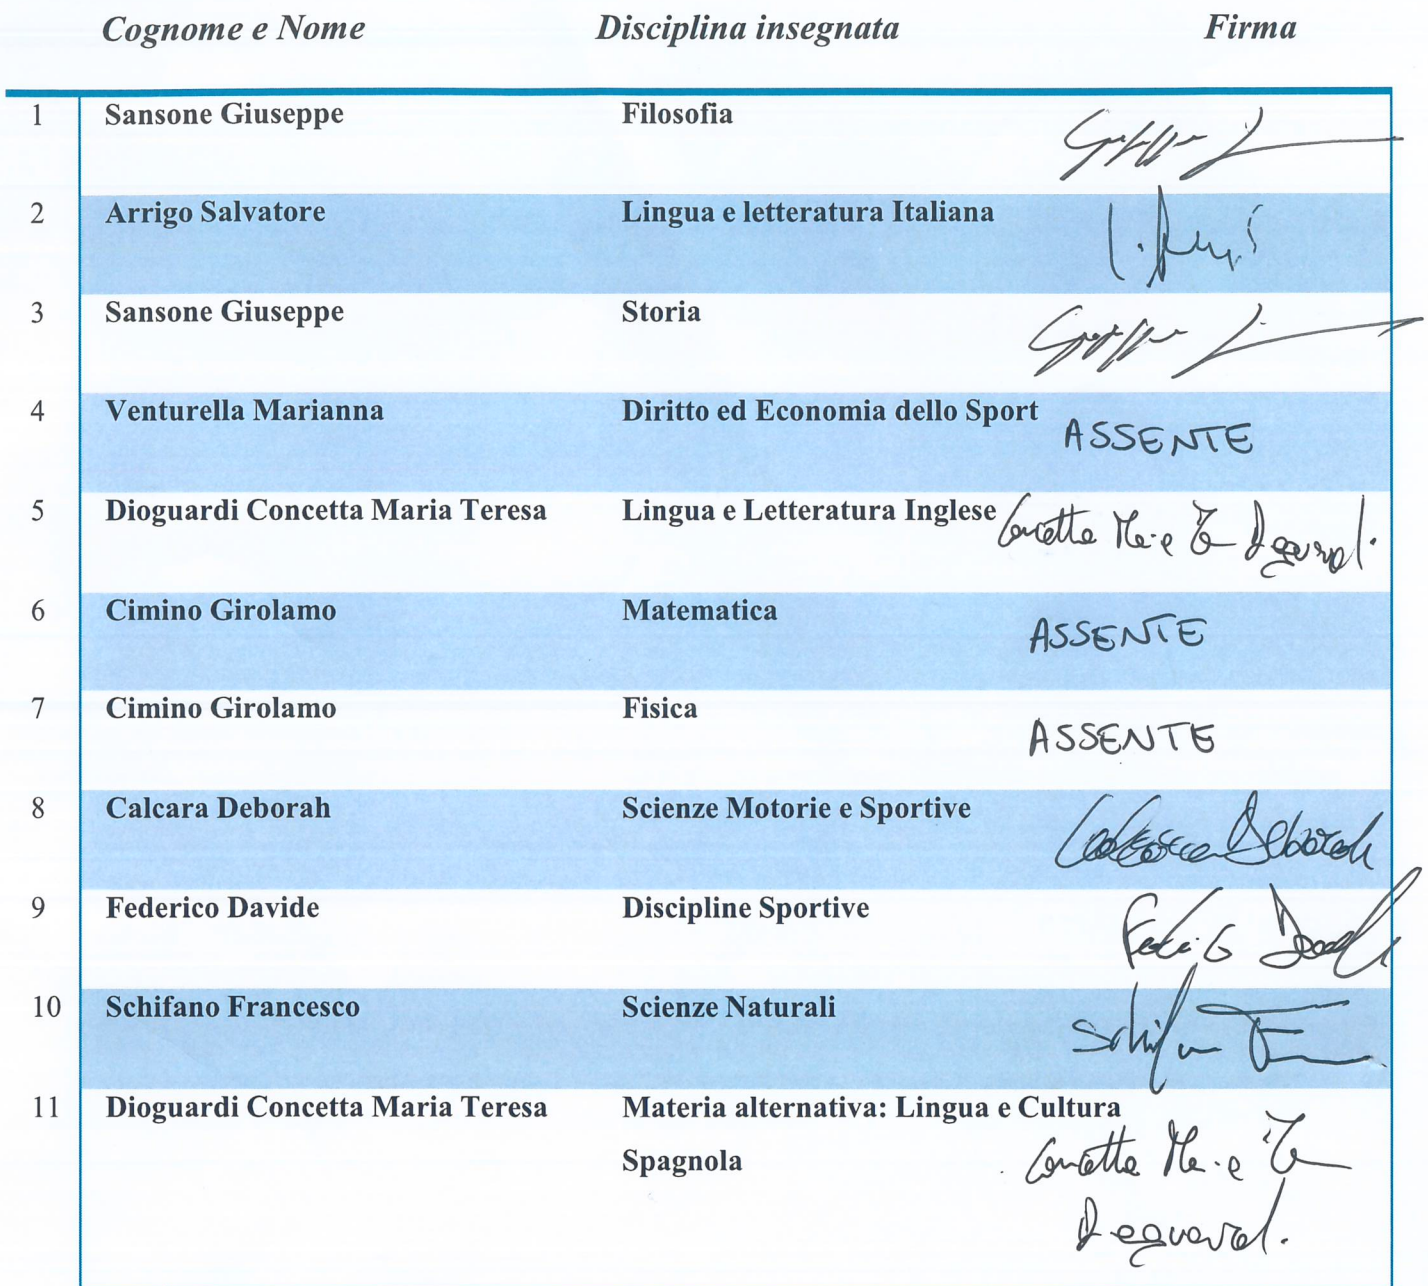 Cognome e Nome Disciplina insegnata Firma
1 Sansone Giuseppe Filosofia
2 Arrigo Salvatore Lingua e letteratura Italiana
3 Sansone Giuseppe Storia
4 Venturella Marianna Diritto ed Economia dello Sport ASSENTE
5 Dioguardi Concetta Maria Teresa Lingua e Letteratura Inglese Concetta
6 Cimino Girolamo Matematica ASSENTE
7 Cimino Girolamo Fisica ASSENTE
8 Calcara Deborah Scienze Motorie e Sportive Calcara Deborah
9 Federico Davide Discipline Sportive
10 Schifano Francesco Scienze Naturali
11 Dioguardi Concetta Maria Teresa Materia alternativa: Lingua e Cultura
Spagnola Concetta